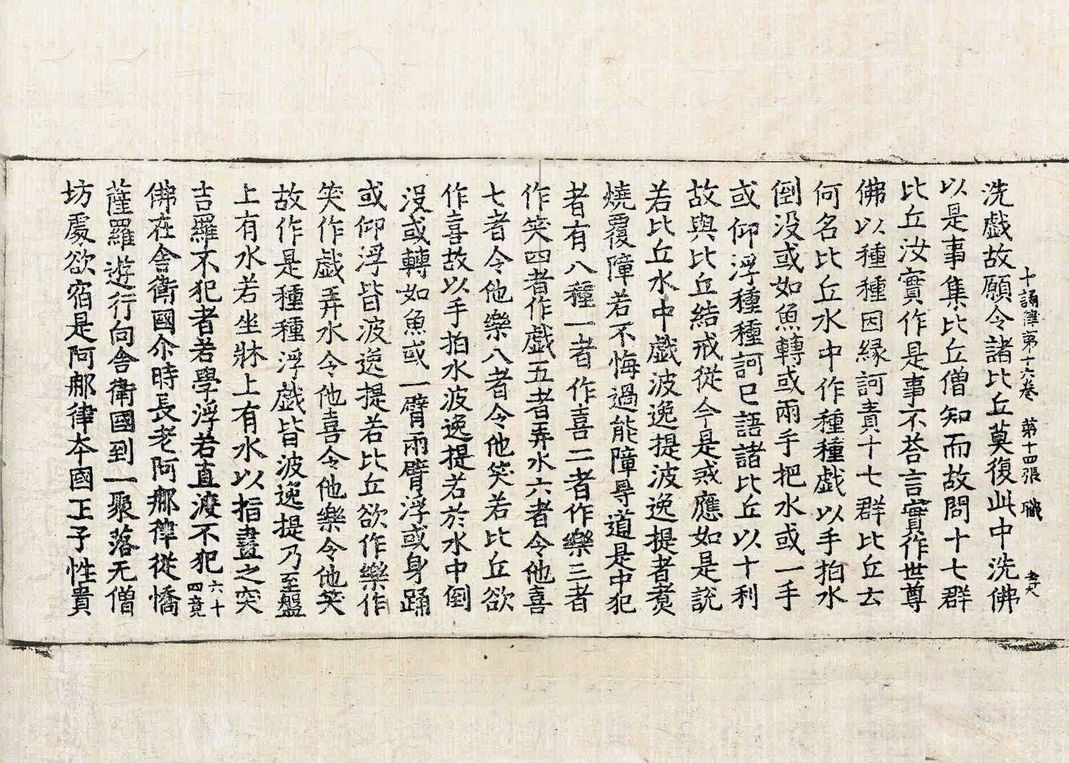 十誦律第十六卷 第十四張 職
洗戲故願令諸比丘莫復此中洗佛
以是事集比丘僧知而故問十七群
比丘汝實作是事不荅言實作世尊
佛以種種因緣訶責十七群比丘去
何名比丘水中作種種戲以手拍水
倒没或如魚轉或兩手把水或一手
或仰浮種種訶已語諸比丘以十利
故與比丘結戒從今是戒應如是說
若比丘水中戲波逸提波逸提者煑
燒覆障若不悔過能障㝵道是中犯
者有八種一者作喜二者作樂三者
作笑四者作戲五者弄水六者令他喜
七者令他樂八者令他笑若比丘欲
作喜故以手拍水波逸提若於水中倒
没或轉如魚或一臂兩臂浮或身踊
或仰浮皆波逸提若比丘欲作樂作
笑作戲弄水令他喜令他樂令他笑
故作是種種浮戲皆波逸提乃至盤
上有水若坐牀上有水以指畫之突
吉羅不犯者若學浮若直渡不犯六十四竟
佛在舍衛國尒時長老阿那律從憍
薩羅遊行向舍衛國到一聚落无僧
坊處欲宿是阿那律夲國王子性貴